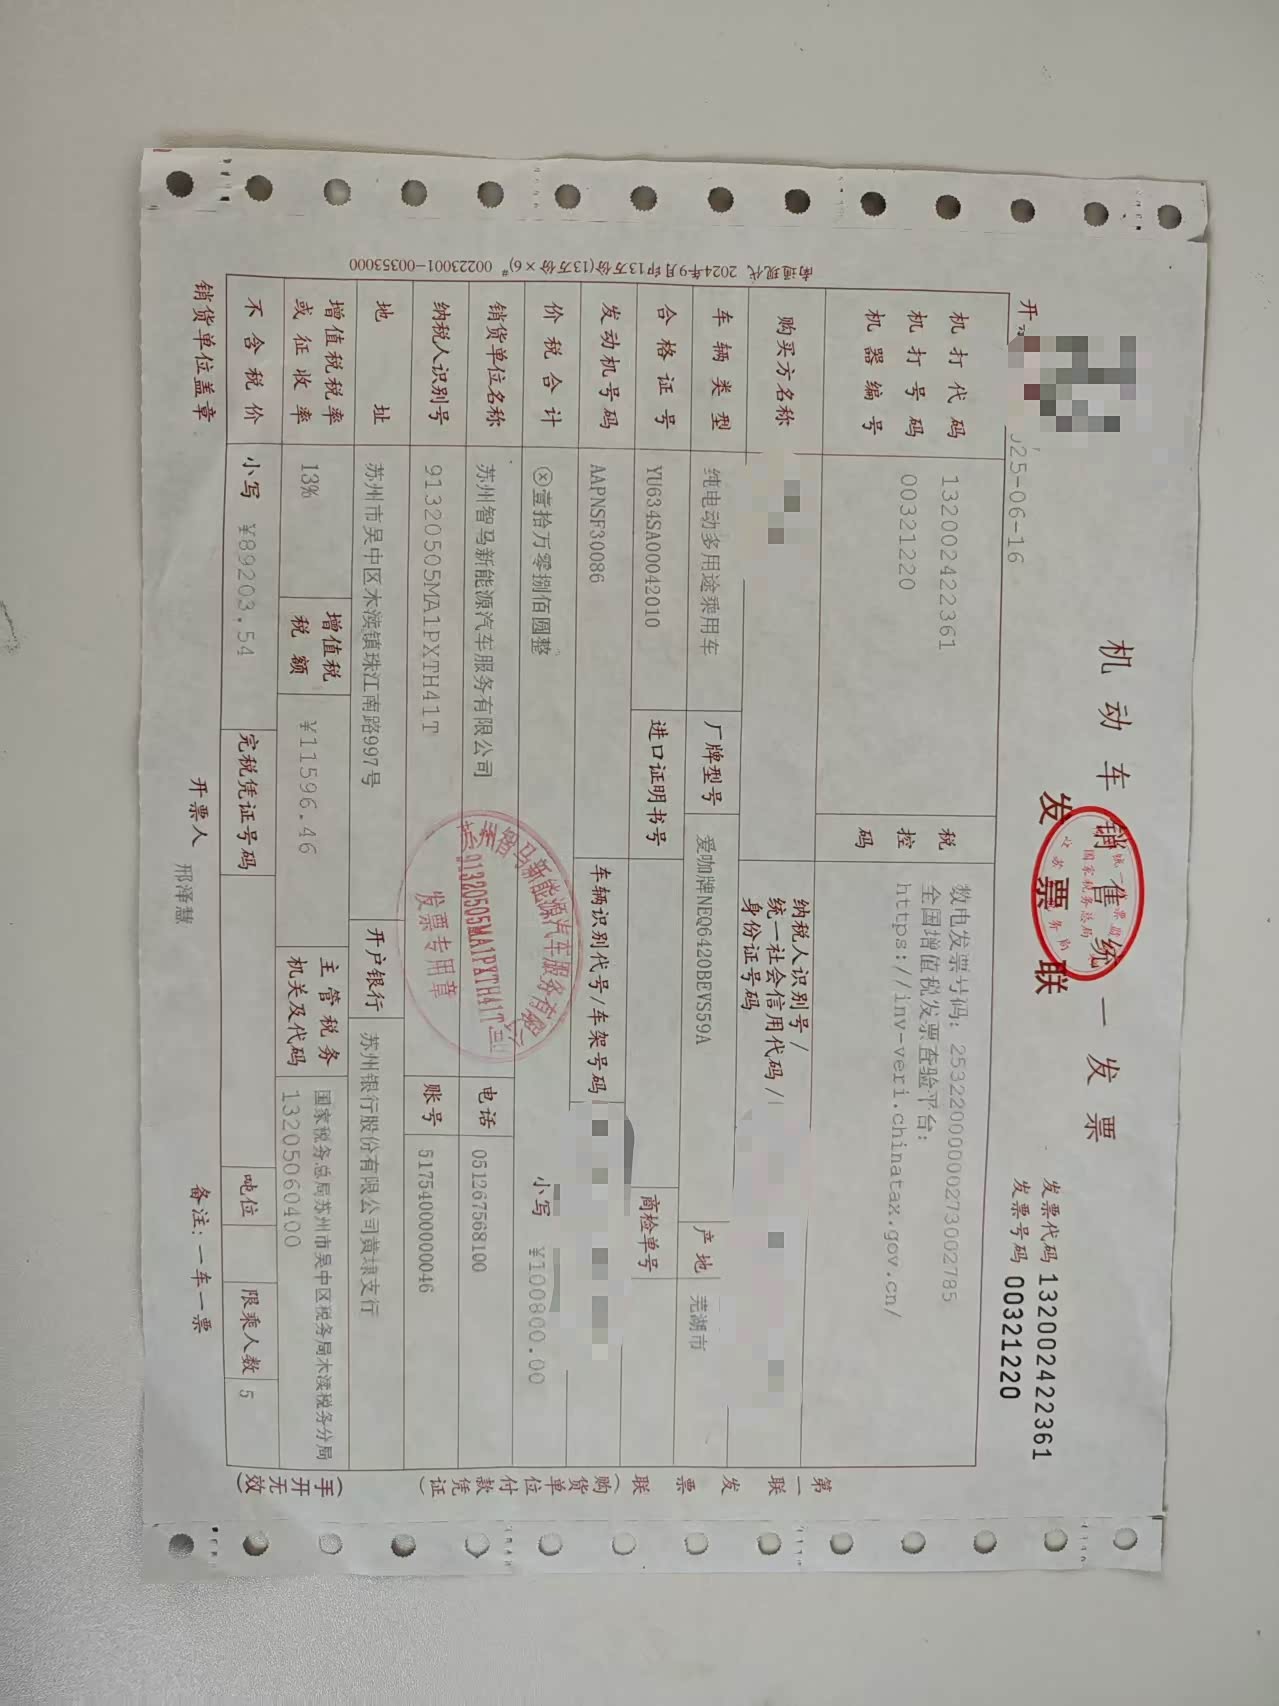 机动车销售统一发票
发票联
发票代码 132002422361
发票号码 00321220
开
025-06-16
机打代码 132002422361
机打号码 00321220
机器编号
税控码
数电发票号码: 25322000000273002785
全国增值税发票查验平台:
https://inv-veri.chinatax.gov.cn/
购买方名称
纳税人识别号/
统一社会信用代码/
身份证号码
车辆类型 纯电动多用途乘用车 厂牌型号 爱咖牌NEQ6420BEVS59A 产地 芜湖市
合格证号 YU634SA00042010 进口证明书号 商检单号
发动机号码 AAPNSF30086 车辆识别代号/车架号码
价税合计 ⓧ壹拾万零捌佰圆整 小写 ¥100800.00
销货单位名称 苏州智马新能源汽车服务有限公司 电话 051267568100
纳税人识别号 91320505MA1PXTH41T 账号 51754000000046
地址 苏州市吴中区木渎镇珠江南路997号 开户银行 苏州银行股份有限公司黄埭支行
增值税税率或征收率 13% 增值税税额 ¥11596.46 主管税务机关及代码 国家税务总局苏州市吴中区税务局木渎税务分局
13205060400
不含税价 小写 ¥89203.54 完税凭证号码 吨位 限乘人数 5
销货单位盖章 开票人 邢泽慧 备注: 一车一票
第一联 发票联 (购货单位付款凭证) (手开无效)
南通现代 2024年9月印13万份(13万份×6)# 00223001-00353000
苏州智马新能源汽车服务有限公司
91320505MA1PXTH41T
发票专用章
国家税务总局